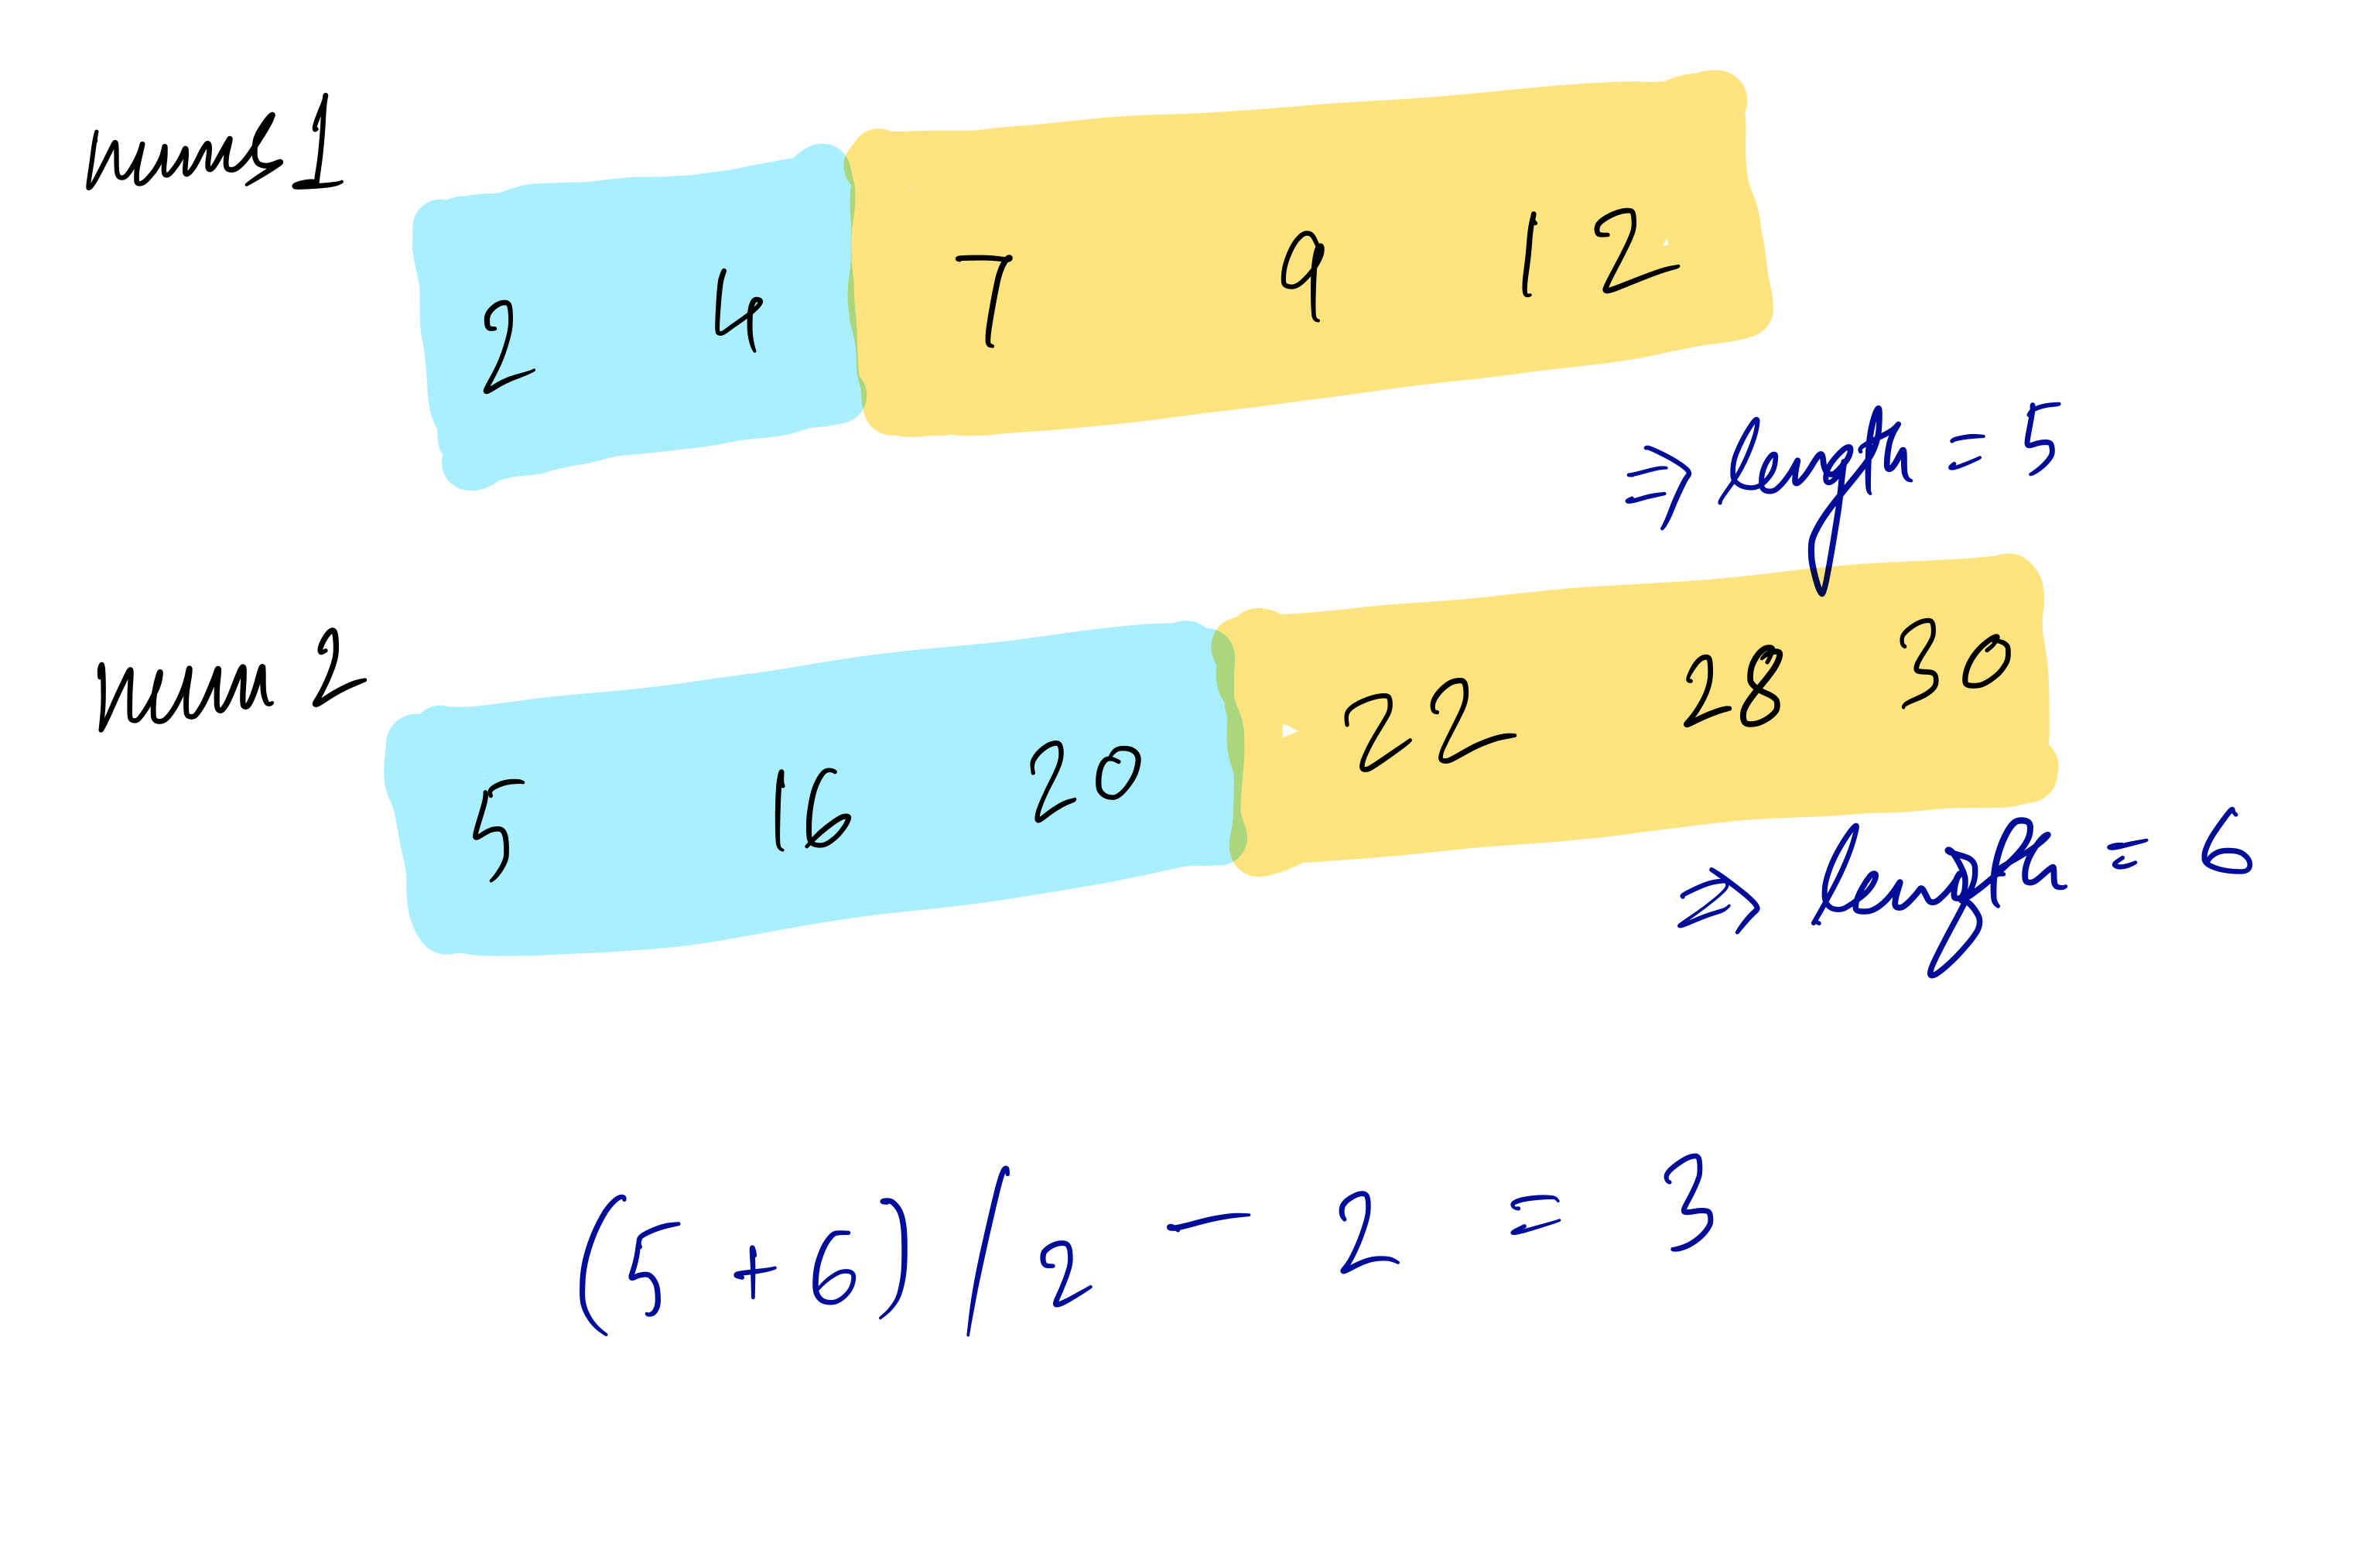 nums 1
2 4 7 9 12
⇒ length = 5
num 2
5 16 20 22 28 30
⇒ length = 6
(5 + 6) / 2 − 2 = 3